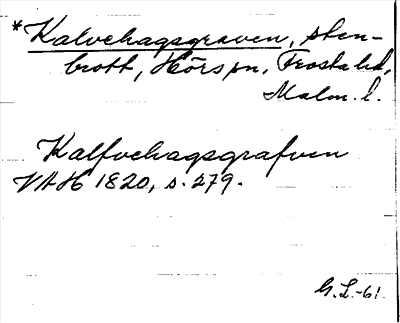 *Kalvehagsgraven, sten-
brott, Hörs sn, Frosta hd,
Malm. l.
Kalfvehagsgrafven
VAH 1820, s. 279.
G.L.-61.